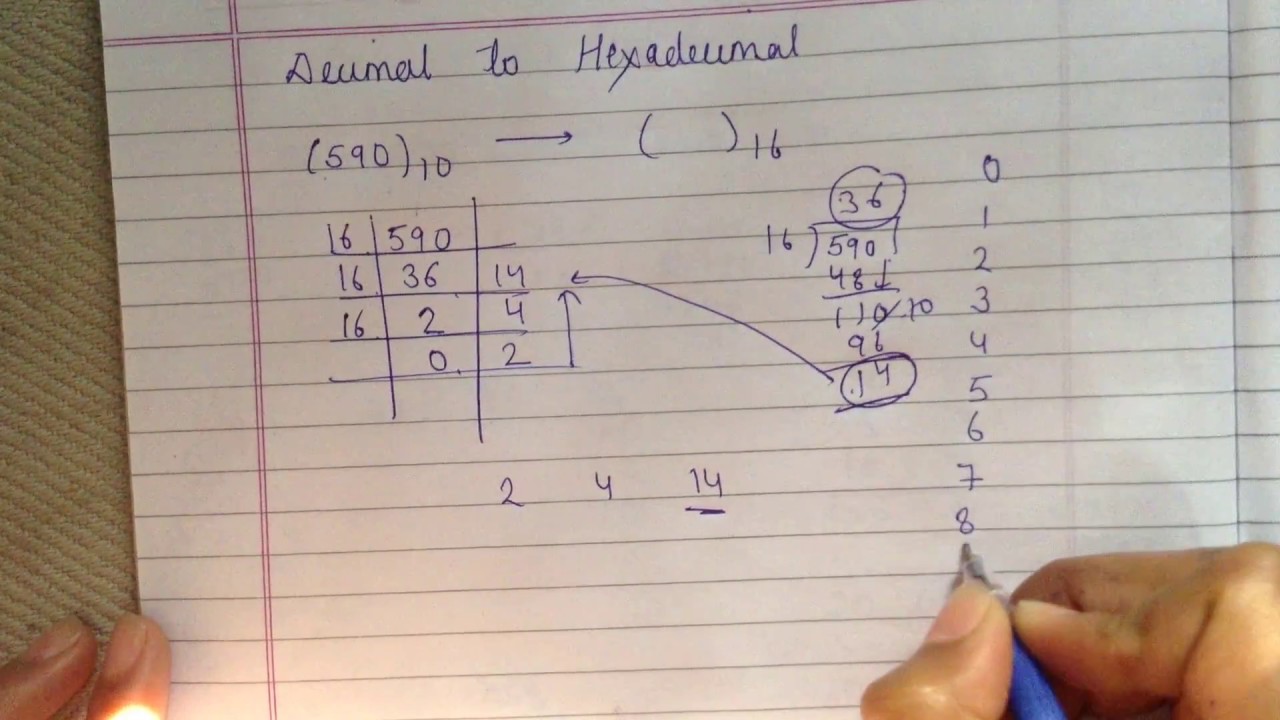 Decimal to Hexadecimal
(590)10 → ( )16
16 590
16 36 14
16 2 4
0 2
36
16 ) 590
48↓
110
96
14
2 4 14
0
1
2
3
4
5
6
7
8